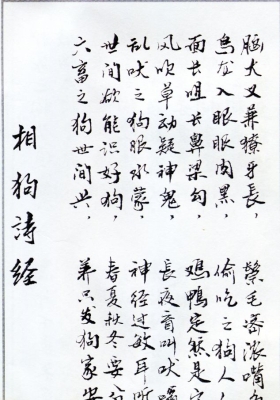 相狗詩经
六畜之狗世间兴，养只发狗家安
世间欲能识好狗，春夏秋冬要
乱吠之狗眼水蒙，神经过敏耳所
风吹草动疑神鬼，长夜音叫吠
面长咀长鼻梁勾，鸡鸭定然是
乌龙入眼眼肉黑，偷吃之狗人
脑大又兼獠牙长，鬃毛浓嘴